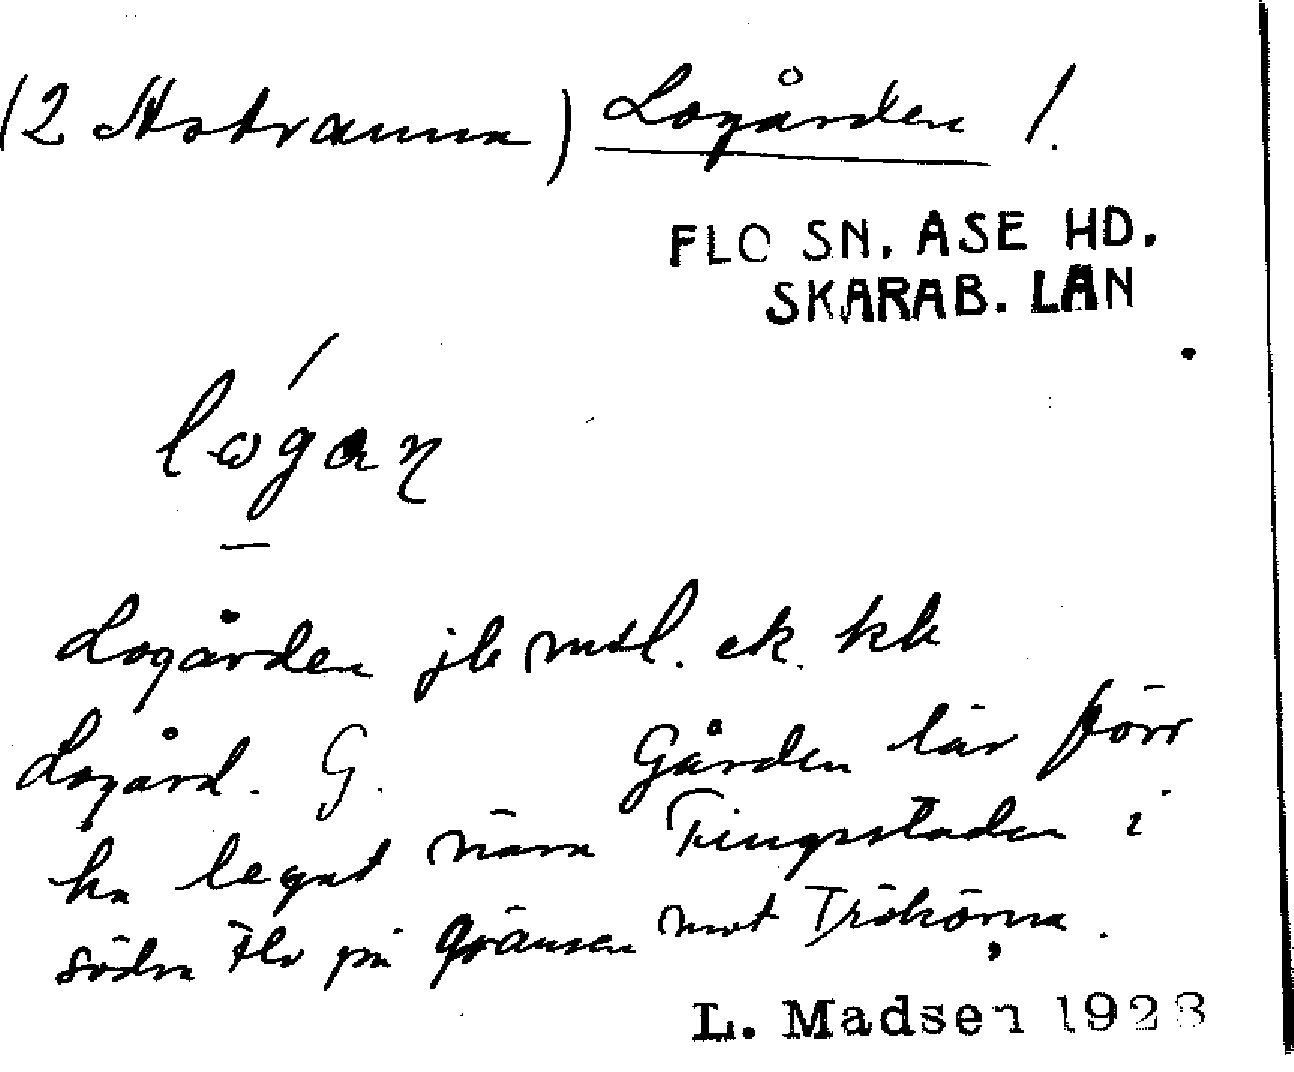 (2 Astranna) Logården /.
FLO SN. ASE HD.
SKARAB. LÄN
lógan
Logården jb mtl. ek. kb
Logård. G. Gården lär förr
ha legat nära Tingstaden i
södra Flo på gränsen mot Tråkörna.
L. Madsen 1928